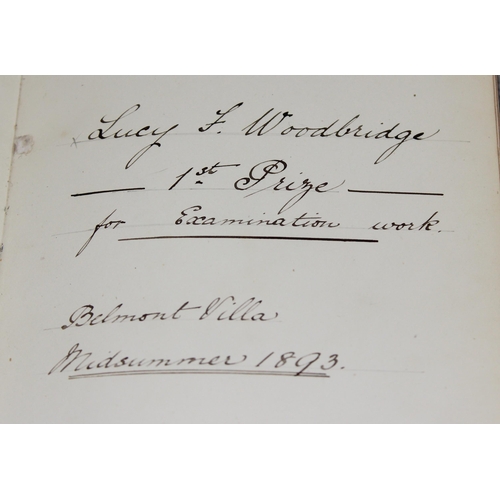 Lucy F. Woodbridge
1st Prize
for Examination work.
Belmont Villa
Midsummer 1893.